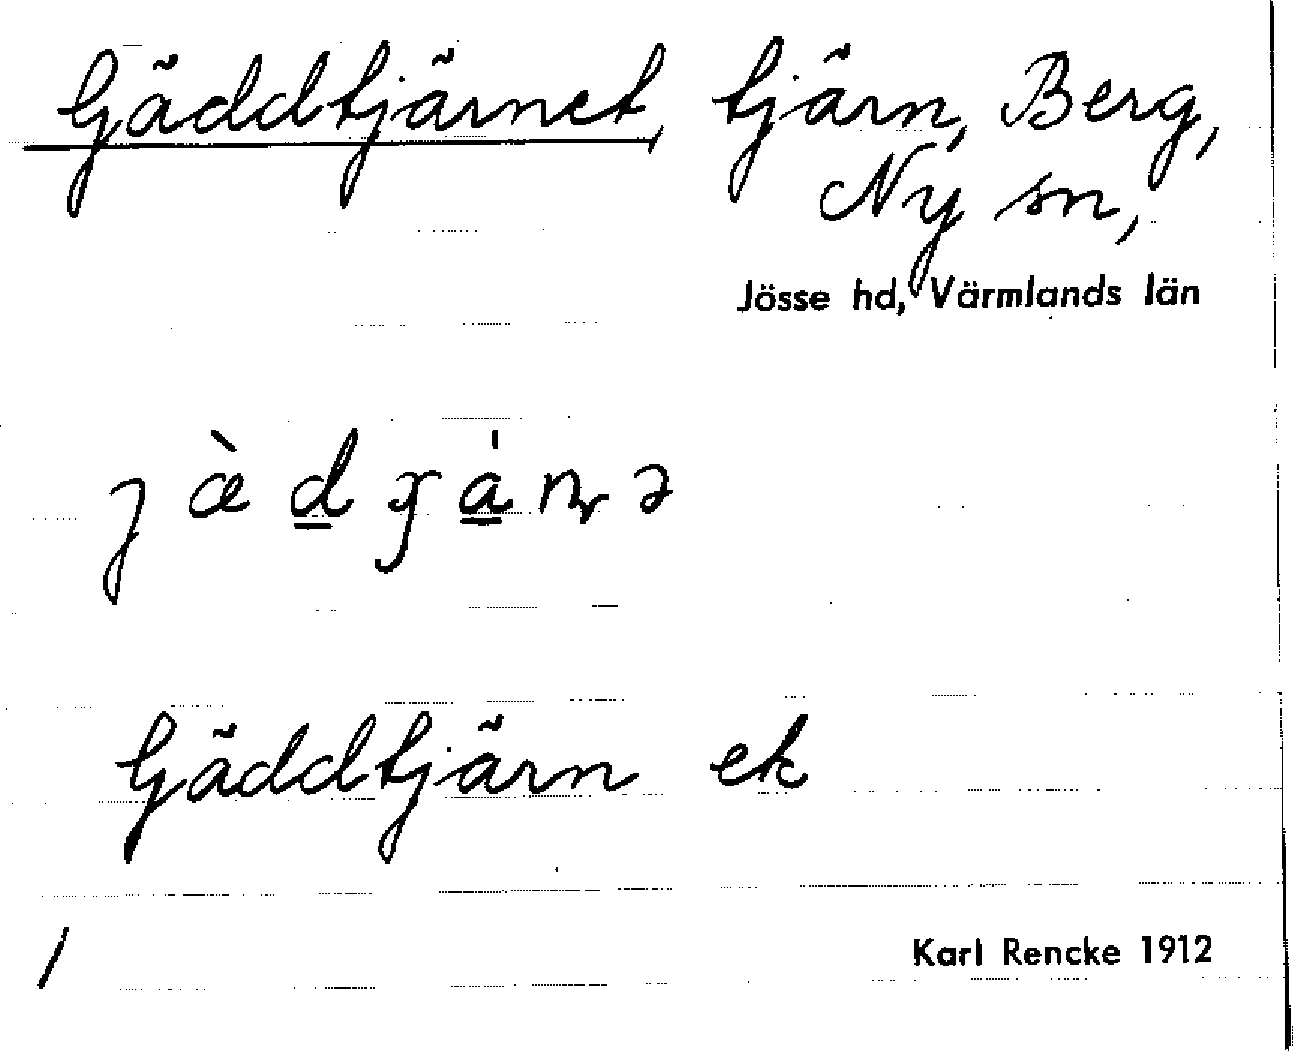 Gäddtjärnet, tjärn, Berg,
Ny sn,
Jösse hd, Värmlands län
Gäddtjärn ek
/
Karl Rencke 1912